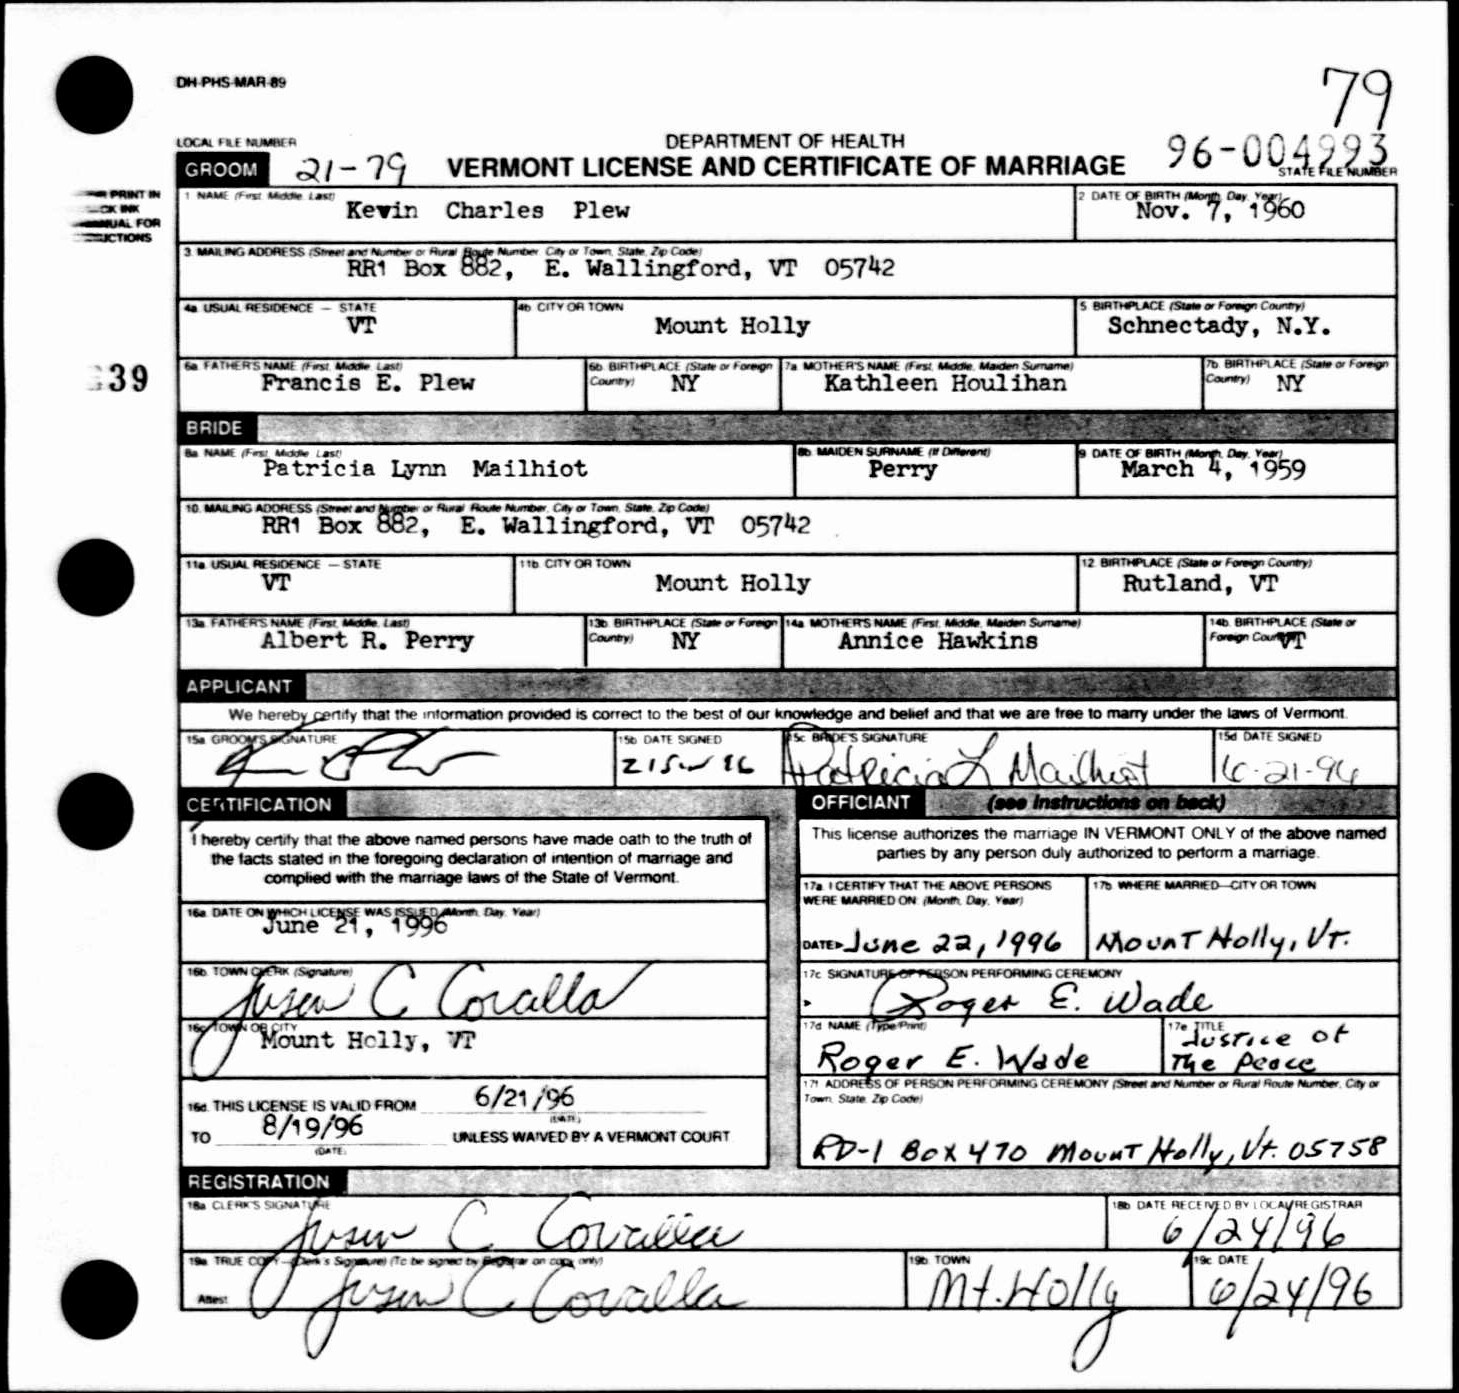 DH-PHS-MAR-89
79
LOCAL FILE NUMBER
DEPARTMENT OF HEALTH
96-004993
GROOM 21-79 VERMONT LICENSE AND CERTIFICATE OF MARRIAGE
STATE FILE NUMBER
PRINT IN
CK INK
UAL FOR
UCTIONS
1 NAME (First, Middle, Last)
Kevin Charles Plew
2 DATE OF BIRTH (Month, Day, Year)
Nov. 7, 1960
3. MAILING ADDRESS (Street and Number or Rural Route Number, City or Town, State, Zip Code)
RR1 Box 882, E. Wallingford, VT 05742
4a. USUAL RESIDENCE — STATE
VT
4b CITY OR TOWN
Mount Holly
5 BIRTHPLACE (State or Foreign Country)
Schnectady, N.Y.
39
6a. FATHER'S NAME (First, Middle, Last)
Francis E. Plew
6b. BIRTHPLACE (State or Foreign Country)
NY
7a. MOTHER'S NAME (First, Middle, Maiden Surname)
Kathleen Houlihan
7b. BIRTHPLACE (State or Foreign Country)
NY
BRIDE
8a. NAME (First, Middle, Last)
Patricia Lynn Mailhiot
8b. MAIDEN SURNAME (If Different)
Perry
9 DATE OF BIRTH (Month, Day, Year)
March 4, 1959
10. MAILING ADDRESS (Street and Number or Rural Route Number, City or Town, State, Zip Code)
RR1 Box 882, E. Wallingford, VT 05742
11a. USUAL RESIDENCE — STATE
VT
11b. CITY OR TOWN
Mount Holly
12. BIRTHPLACE (State or Foreign Country)
Rutland, VT
13a. FATHER'S NAME (First, Middle, Last)
Albert R. Perry
13b. BIRTHPLACE (State or Foreign Country)
NY
14a. MOTHER'S NAME (First, Middle, Maiden Surname)
Annice Hawkins
14b. BIRTHPLACE (State or Foreign Country)
VT
APPLICANT
We hereby certify that the information provided is correct to the best of our knowledge and belief and that we are free to marry under the laws of Vermont.
15a. GROOM'S SIGNATURE
15b DATE SIGNED
21 Jun 96
15c BRIDE'S SIGNATURE
Patricia L Mailhiot
15d DATE SIGNED
6-21-96
CERTIFICATION
I hereby certify that the above named persons have made oath to the truth of
the facts stated in the foregoing declaration of intention of marriage and
complied with the marriage laws of the State of Vermont.
16a. DATE ON WHICH LICENSE WAS ISSUED (Month, Day, Year)
June 21, 1996
16b. TOWN CLERK (Signature)
Susan C Covalla
16c. TOWN OR CITY
Mount Holly, VT
16d. THIS LICENSE IS VALID FROM 6/21/96
(DATE)
TO 8/19/96 UNLESS WAIVED BY A VERMONT COURT
(DATE)
OFFICIANT (see instructions on back)
This license authorizes the marriage IN VERMONT ONLY of the above named
parties by any person duly authorized to perform a marriage.
17a. I CERTIFY THAT THE ABOVE PERSONS
WERE MARRIED ON: (Month, Day, Year)
DATE June 22, 1996
17b WHERE MARRIED—CITY OR TOWN
Mount Holly, Vt.
17c SIGNATURE OF PERSON PERFORMING CEREMONY
Roger E. Wade
17d NAME (Type/Print)
Roger E. Wade
17e TITLE
Justice of
The Peace
17f. ADDRESS OF PERSON PERFORMING CEREMONY (Street and Number or Rural Route Number, City or
Town, State, Zip Code)
RD-1 Box 470 Mount Holly, Vt. 05758
REGISTRATION
18a. CLERK'S SIGNATURE
Susan C. Covalla
18b. DATE RECEIVED BY LOCAL REGISTRAR
6/24/96
19a. TRUE COPY—(Clerk's Signature) (To be signed by Registrar on copy only)
Attest Susan C Covalla
19b TOWN
Mt. Holly
19c DATE
6/24/96